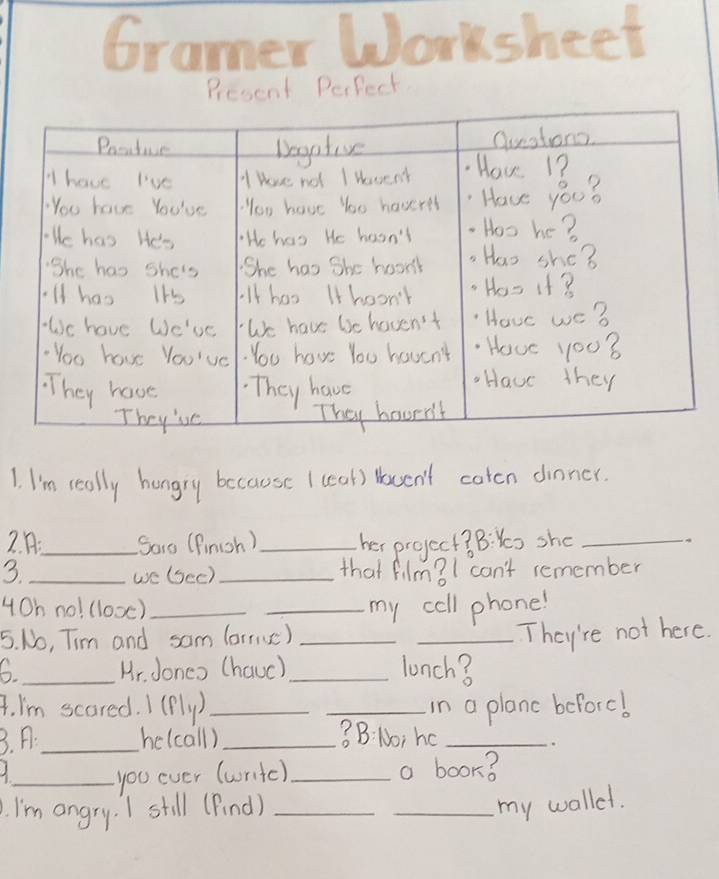 Gramer Worksheet
Present Perfect
Positive Negative Questions
I have I've I Have not I Havent Have I?
You have You've You have You haven't Have you?
He has He's He has He hasn't Has he?
She has She's She has She hasn't Has she?
It has It's It has It hasn't Has it?
We have We've We have We haven't Have we?
You have You've You have You havent Have you?
They have They have Have they
They've They haven't
1. I'm really hungry because I (eat) Haven't eaten dinner.
2. A: ______ Sara (finish) ______ her project? B: Yes she ______.
3. ______ we (see) ______ that film? I can't remember
4 Oh no! (lose) ______ ______ my cell phone!
5. No, Tim and sam (arrive) ______ ______ They're not here.
6. ______ Mr. Jones (have) ______ lunch?
7. I'm scared. I (fly) ______ ______ in a plane before!
8. A: ______ he (call) ______? B: No, he ______.
9. ______ you ever (write) ______ a book?
. I'm angry. I still (find) ______ ______ my wallet.